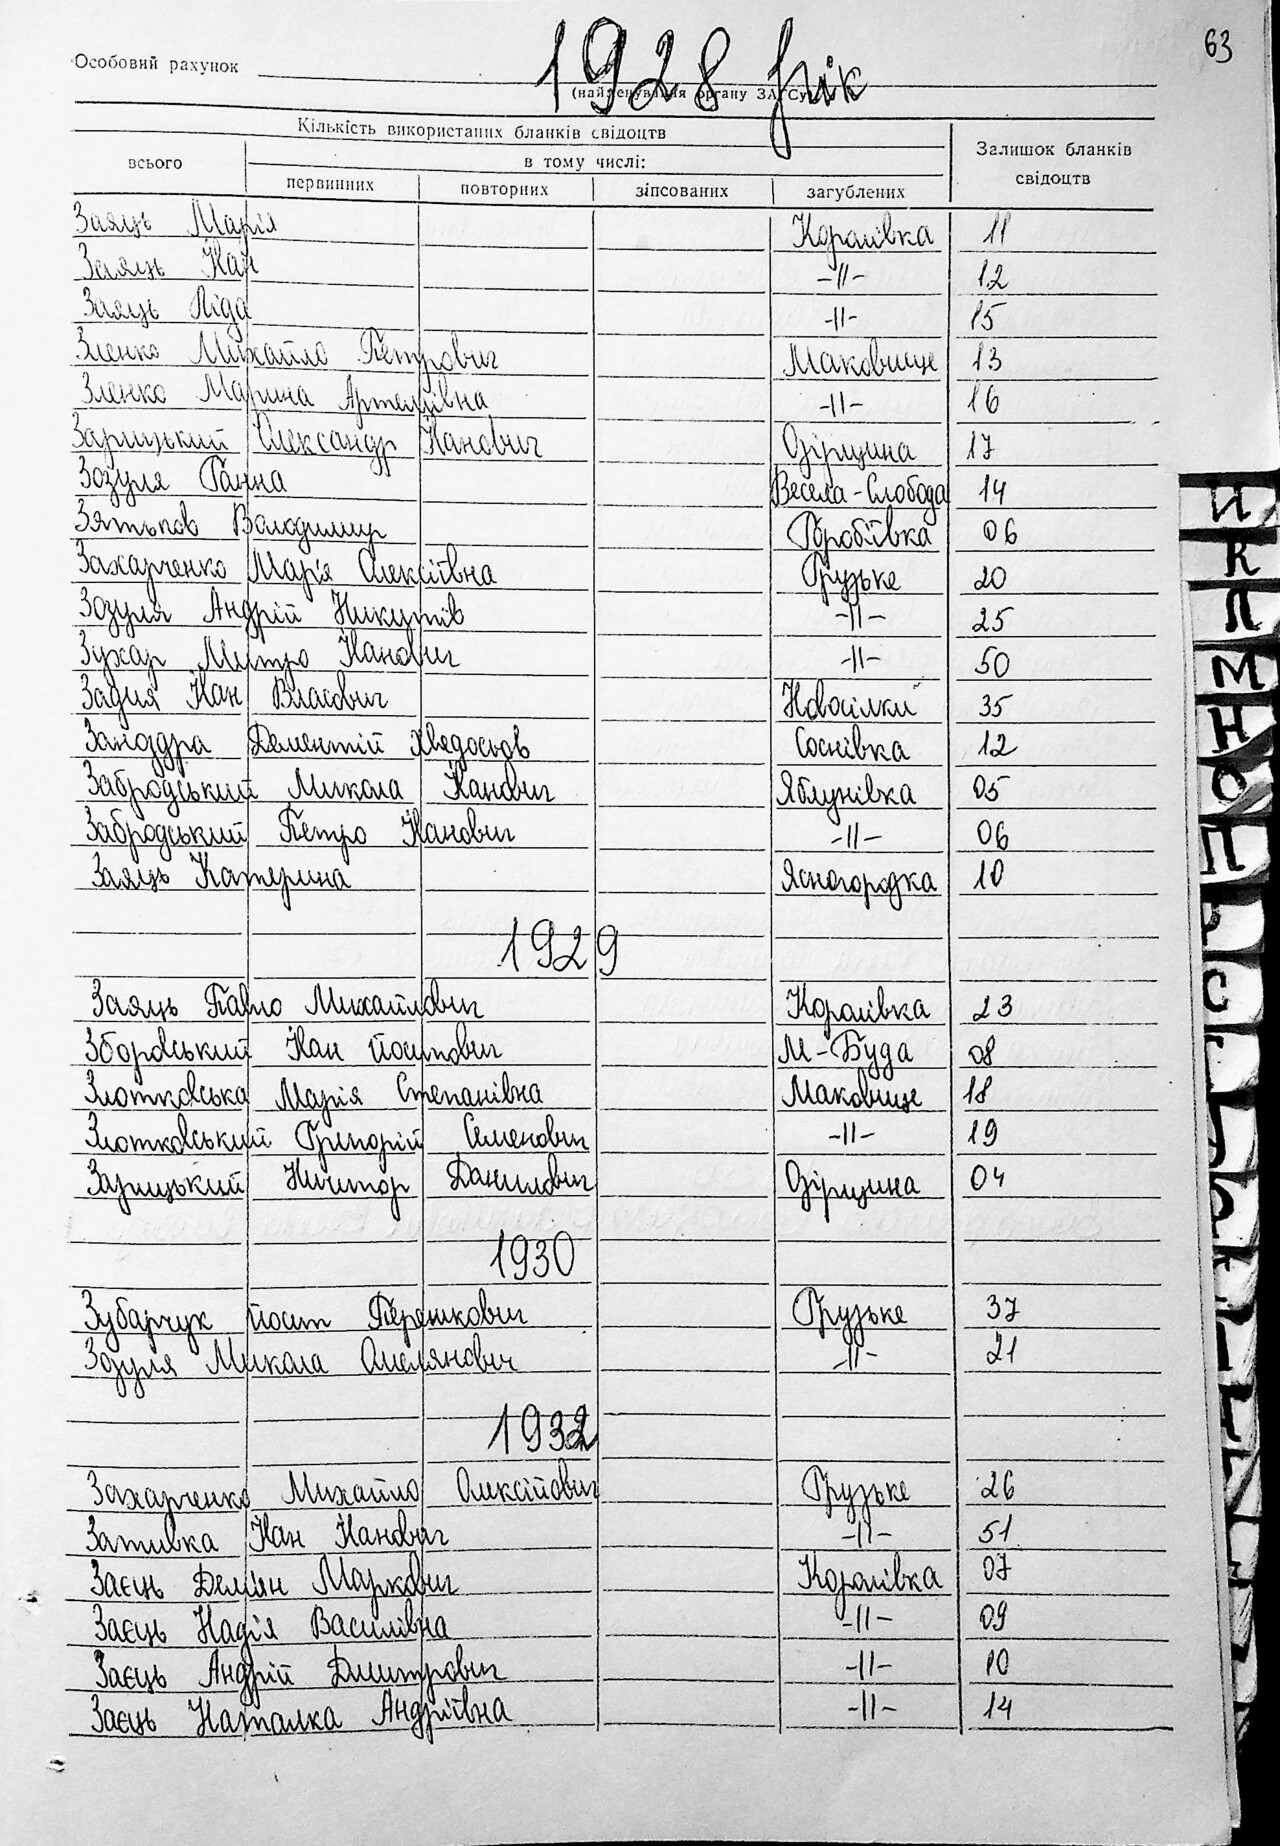 63
1928 рік
Особовий рахунок
(найменування органу ЗАГСу)
Кількість використаних бланків свідоцтв
Залишок бланків свідоцтв
всього
в тому числі:
первинних повторних зіпсованих загублених
Заяць Марія Королівка 11
Заяць Іван -||- 12
Заяць Ліда -||- 15
Зленко Михайло Петрович Маковище 13
Зленко Марина Артемівна -||- 16
Зарицький Олександр Іванович Озірщина 17
Зозуля Ганна Весела-Слобода 14
Зятьков Володимир Горобіївка 06
Захарченко Марія Олексіївна Грузьке 20
Зозуля Андрій Никитів -||- 25
Зухар Митро Іванович -||- 50
Задия Іван Власович Новосілки 35
Заноздра Дементій Хведосьов Соснівка 12
Забродський Микола Іванович Яблунівка 05
Забродський Петро Іванович -||- 06
Заяць Катерина Ясногородка 10
1929
Заяць Павло Михайлович Королівка 23
Зборовський Іван Йосипович М-Буда 08
Злотковська Марія Степанівна Маковище 18
Злотковський Григорій Семенович -||- 19
Зарицький Данилович Озірщина 04
1930
Зубарчук Йосип Грузьке 37
Зозуля Микола Омелянович -||- 21
1932
Захарченко Михайло Олексійович Грузьке 26
Заливка Іван Іванович -||- 51
Заєць Демян Маркович Королівка 07
Заєць Надія Василівна -||- 09
Заєць Андрій Дмитрович -||- 10
Заєць Наталка Андріївна -||- 14
И
К
Л
М
Н
О
П
Р
С